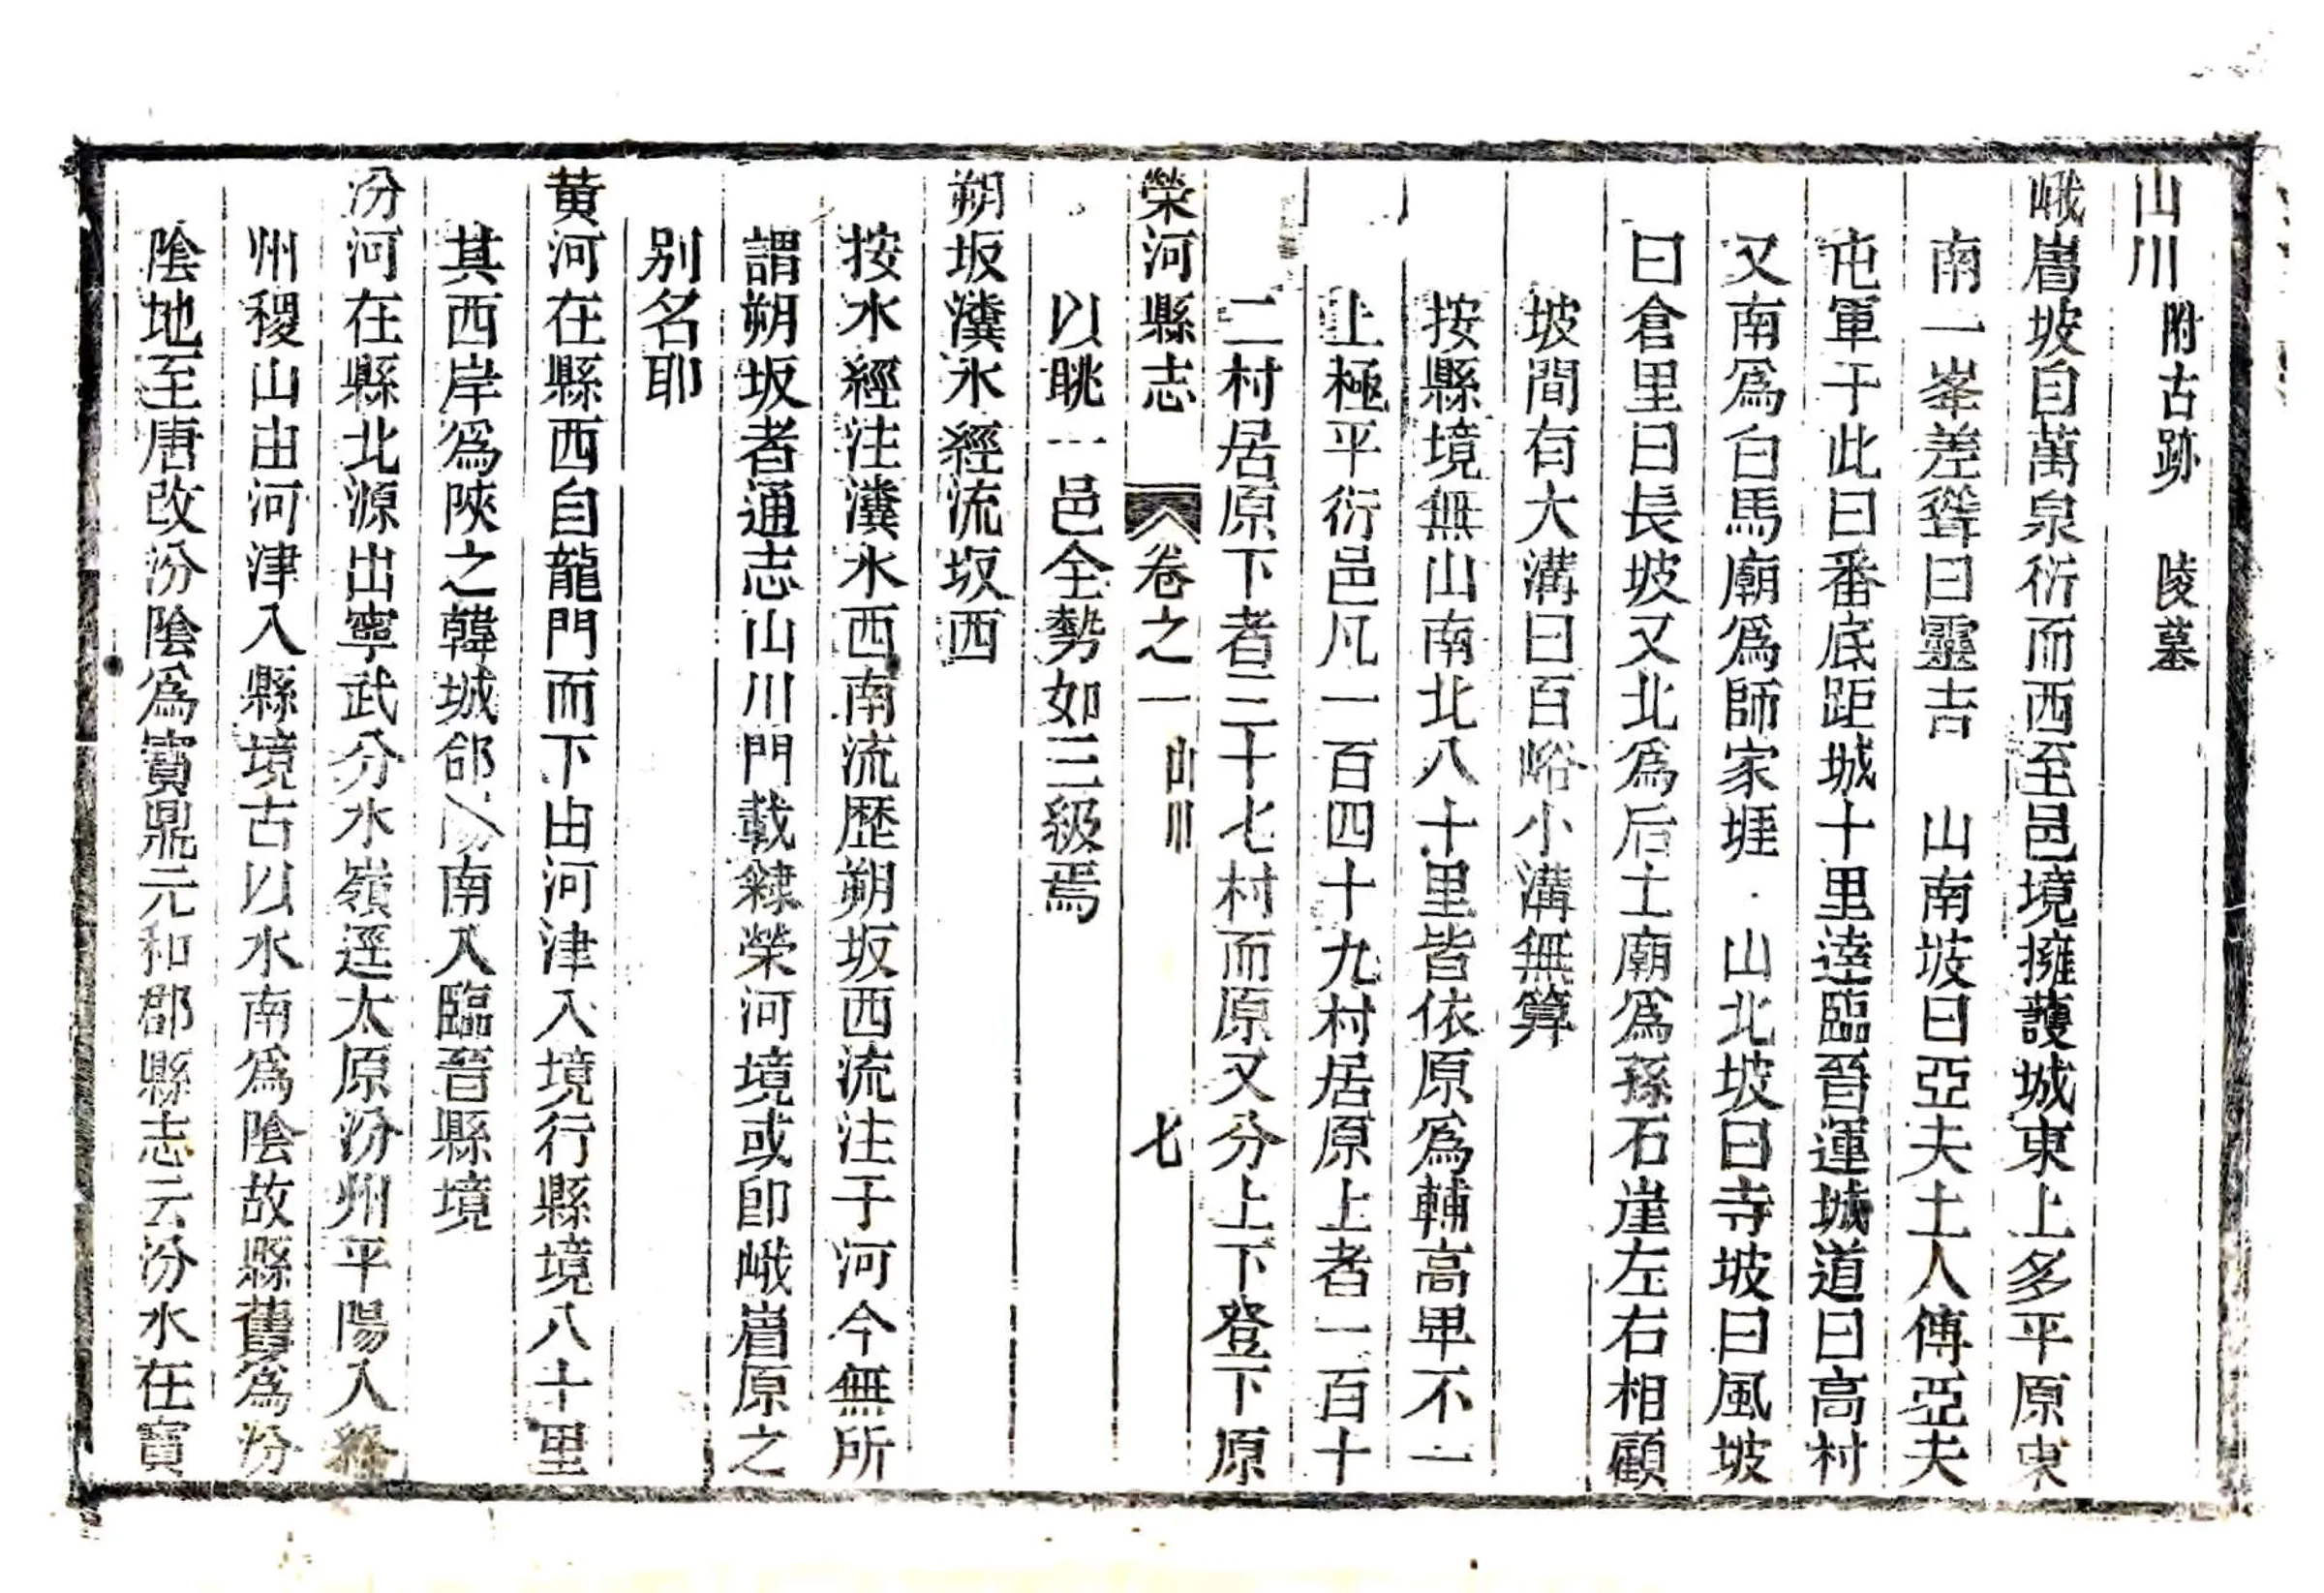 山川 附古跡 陵墓
峨嵋坡自萬泉衍而西至邑境擁護城東上多平原東
南一峯差聳曰靈吉 山南坡曰亞夫土人傳亞夫
屯軍于此曰番底距城十里逵臨晉運城道曰高村
又南爲白馬廟爲師家堐 山北坡曰寺坡曰風坡
曰倉里曰長坡又北爲后土廟爲孫石崖左右相顧
坡間有大溝曰百峪小溝無算
按縣境無山南北八十里皆依原爲輔高卑不一
上極平衍邑凡一百四十九村居原上者一百十
二村居原下者三十七村而原又分上下登下原
以眺一邑全勢如三級焉
榮河縣志 卷之一 山川 七
朔坂瀵水經流坂西
按水經注瀵水西南流歴朔坂西流注于河今無所
謂朔坂者通志山川門載隸榮河境或卽峨嵋原之
别名耶
黄河在縣西自龍門而下由河津入境行縣境八十里
其西岸爲陜之韓城郃陽南入臨晉縣境
汾河在縣北源出寧武分水嶺逕太原汾州平陽入絳
州稷山由河津入縣境古以水南爲陰故縣舊爲汾
陰地至唐改汾陰爲寳鼎元和郡縣志云汾水在寳